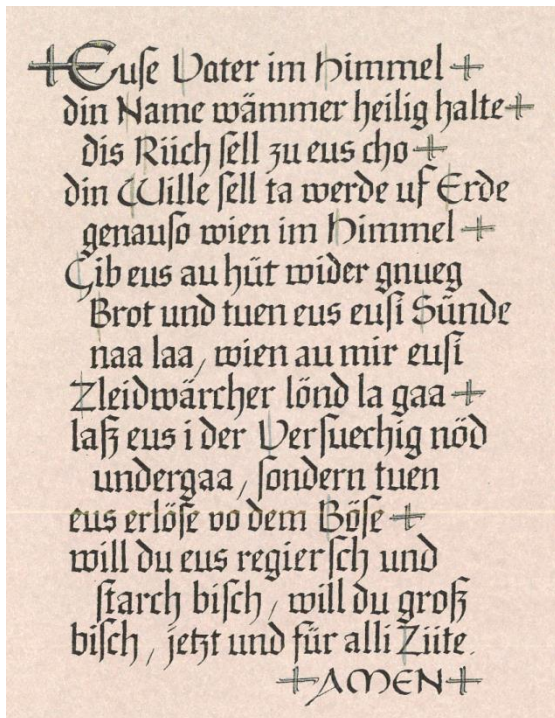 +Euse Vater im Himmel +
din Name wämmer heilig halte+
dis Riich sell zu eus cho +
din Wille sell ta werde uf Erde
genauso wien im Himmel +
Gib eus au hüt wider gnueg
Brot und tuen eus eusi Sünde
naa laa, wien au mir eusi
Zleidwärcher lönd la gaa +
laß eus i der Versuechig nöd
undergaa, sondern tuen
eus erlöse vo dem Böse +
will du eus regiersch und
starch bisch, will du groß
bisch, jetzt und für alli Ziite.
+AMEN+